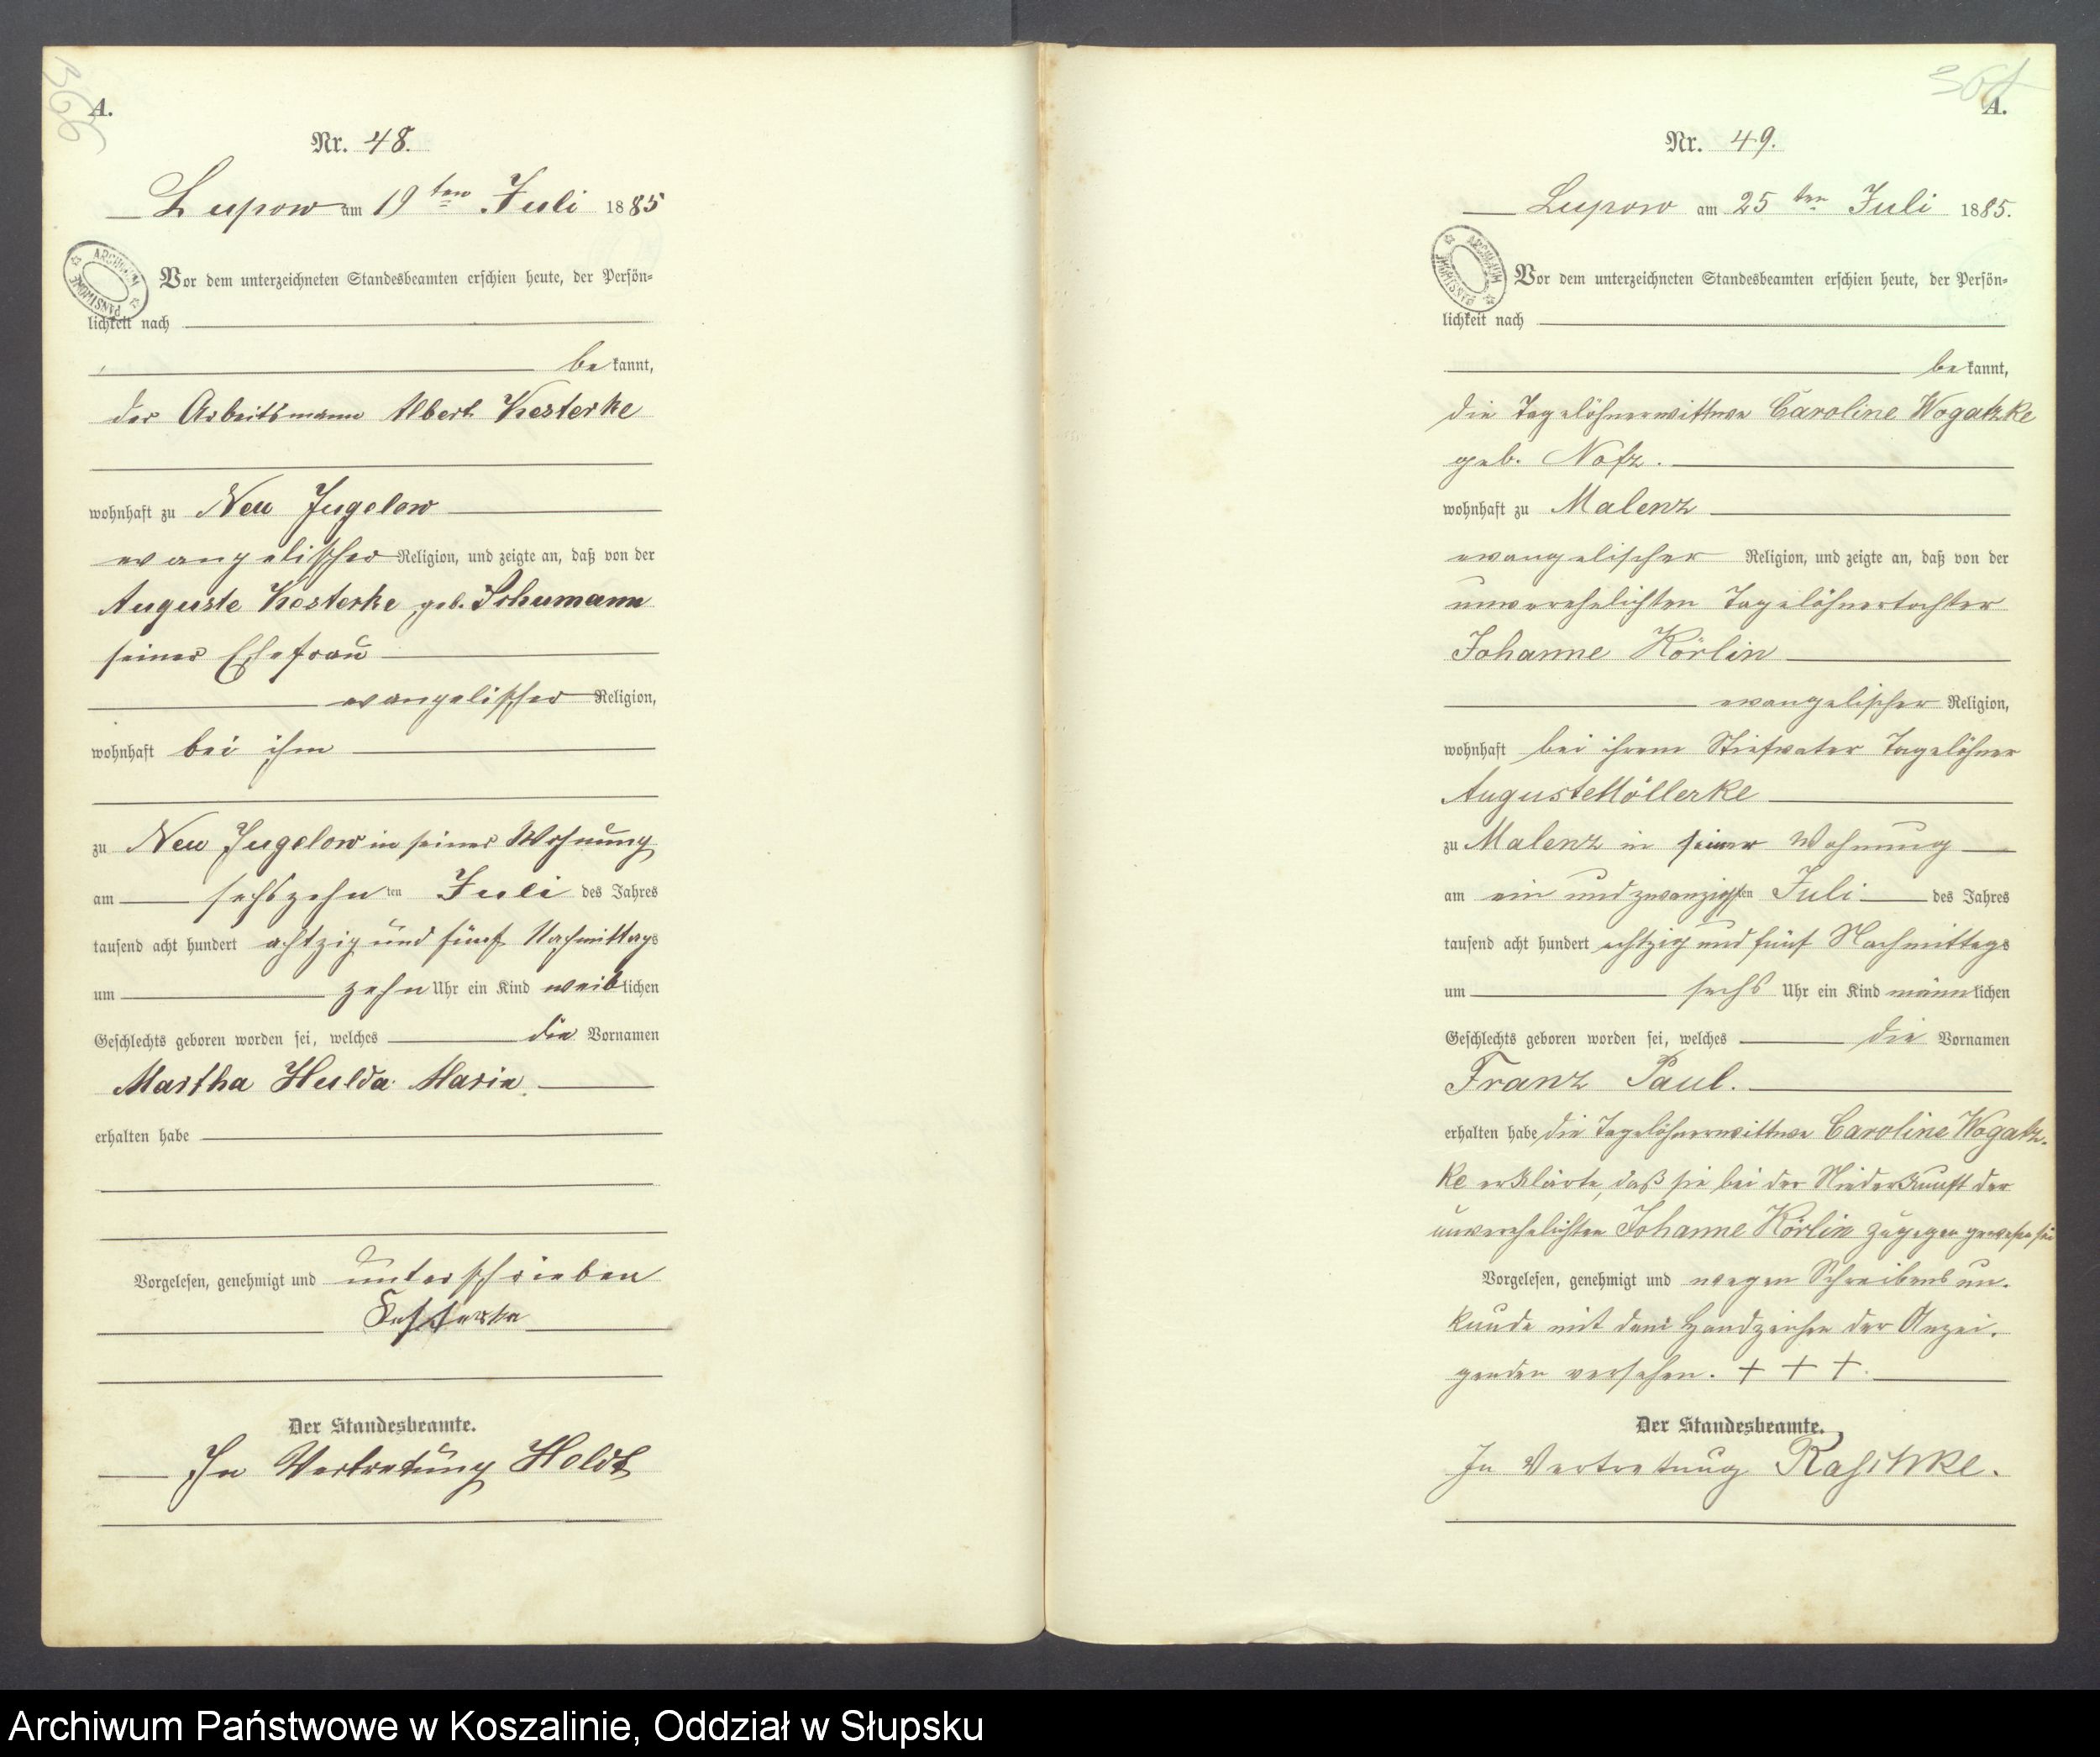 A.
Nr. 48.
Lupow am 19ten Juli 1885
ARCHIWUM PAŃSTWOWE
Vor dem unterzeichneten Standesbeamten erschien heute, der Persön=
lichkeit nach
bekannt,
der Arbeitsmann Albert Kesterke
wohnhaft zu Neu Jugelow
evangelischer Religion, und zeigte an, daß von der
Auguste Kesterke geb. Schumann
seiner Ehefrau
evangelischer Religion,
wohnhaft bei ihm
zu Neu Jugelow in seiner Wohnung
am sechszehnten Juli des Jahres
tausend acht hundert achtzig und fünf Nachmittags
um zehn Uhr ein Kind weiblichen
Geschlechts geboren worden sei, welches die Vornamen
Martha Hulda Marie
erhalten habe
Vorgelesen, genehmigt und unterschrieben
Der Standesbeamte.
In Vertretung Holdt
A.
Nr. 49.
Lupow am 25ten Juli 1885.
ARCHIWUM PAŃSTWOWE
Vor dem unterzeichneten Standesbeamten erschien heute, der Persön=
lichkeit nach
bekannt,
die Tagelöhnerwittwe Caroline Wogatzke
geb. Nofz.
wohnhaft zu Malenz
evangelischer Religion, und zeigte an, daß von der
unverehelichten Tagelöhnertochter
Johanne Körlin
evangelischer Religion,
wohnhaft bei ihrem Stiefvater Tagelöhner
August Möllerke
zu Malenz in seiner Wohnung
am ein und zwanzigsten Juli des Jahres
tausend acht hundert achtzig und fünf Nachmittags
um sechs Uhr ein Kind männlichen
Geschlechts geboren worden sei, welches die Vornamen
Franz Paul.
erhalten habe die Tagelöhnerwittwe Caroline Wogatz-
ke erklärte, daß sie bei der Niederkunft der
unverehelichten Johanne Körlin zugegen gewesen sei
Vorgelesen, genehmigt und wegen Schreibens un-
kunde mit dem Handzeichen der Anzei-
genden versehen. + + +.
Der Standesbeamte.
In Vertretung Raschke.
Archiwum Państwowe w Koszalinie, Oddział w Słupsku